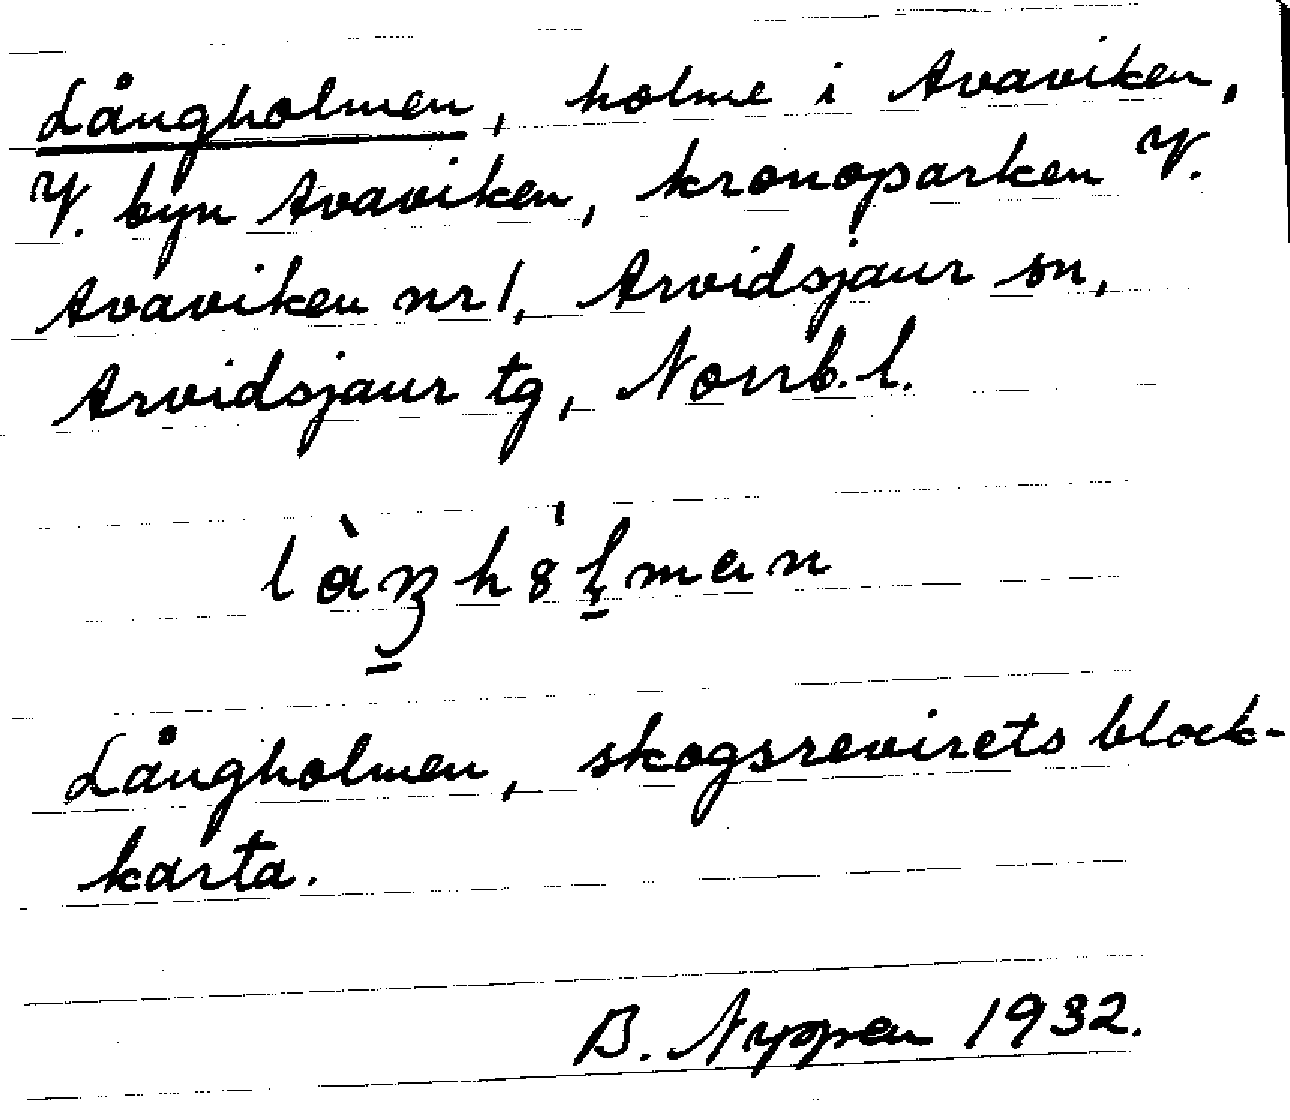 Långholmen, holme i Avaviken,
V. byn Avaviken, kronoparken V.
Avaviken nr 1, Arvidsjaur sn,
Arvidsjaur tg, Norrb. l.
Långholmen, skogsrevirets block-
karta.
B. Nyppen 1932.